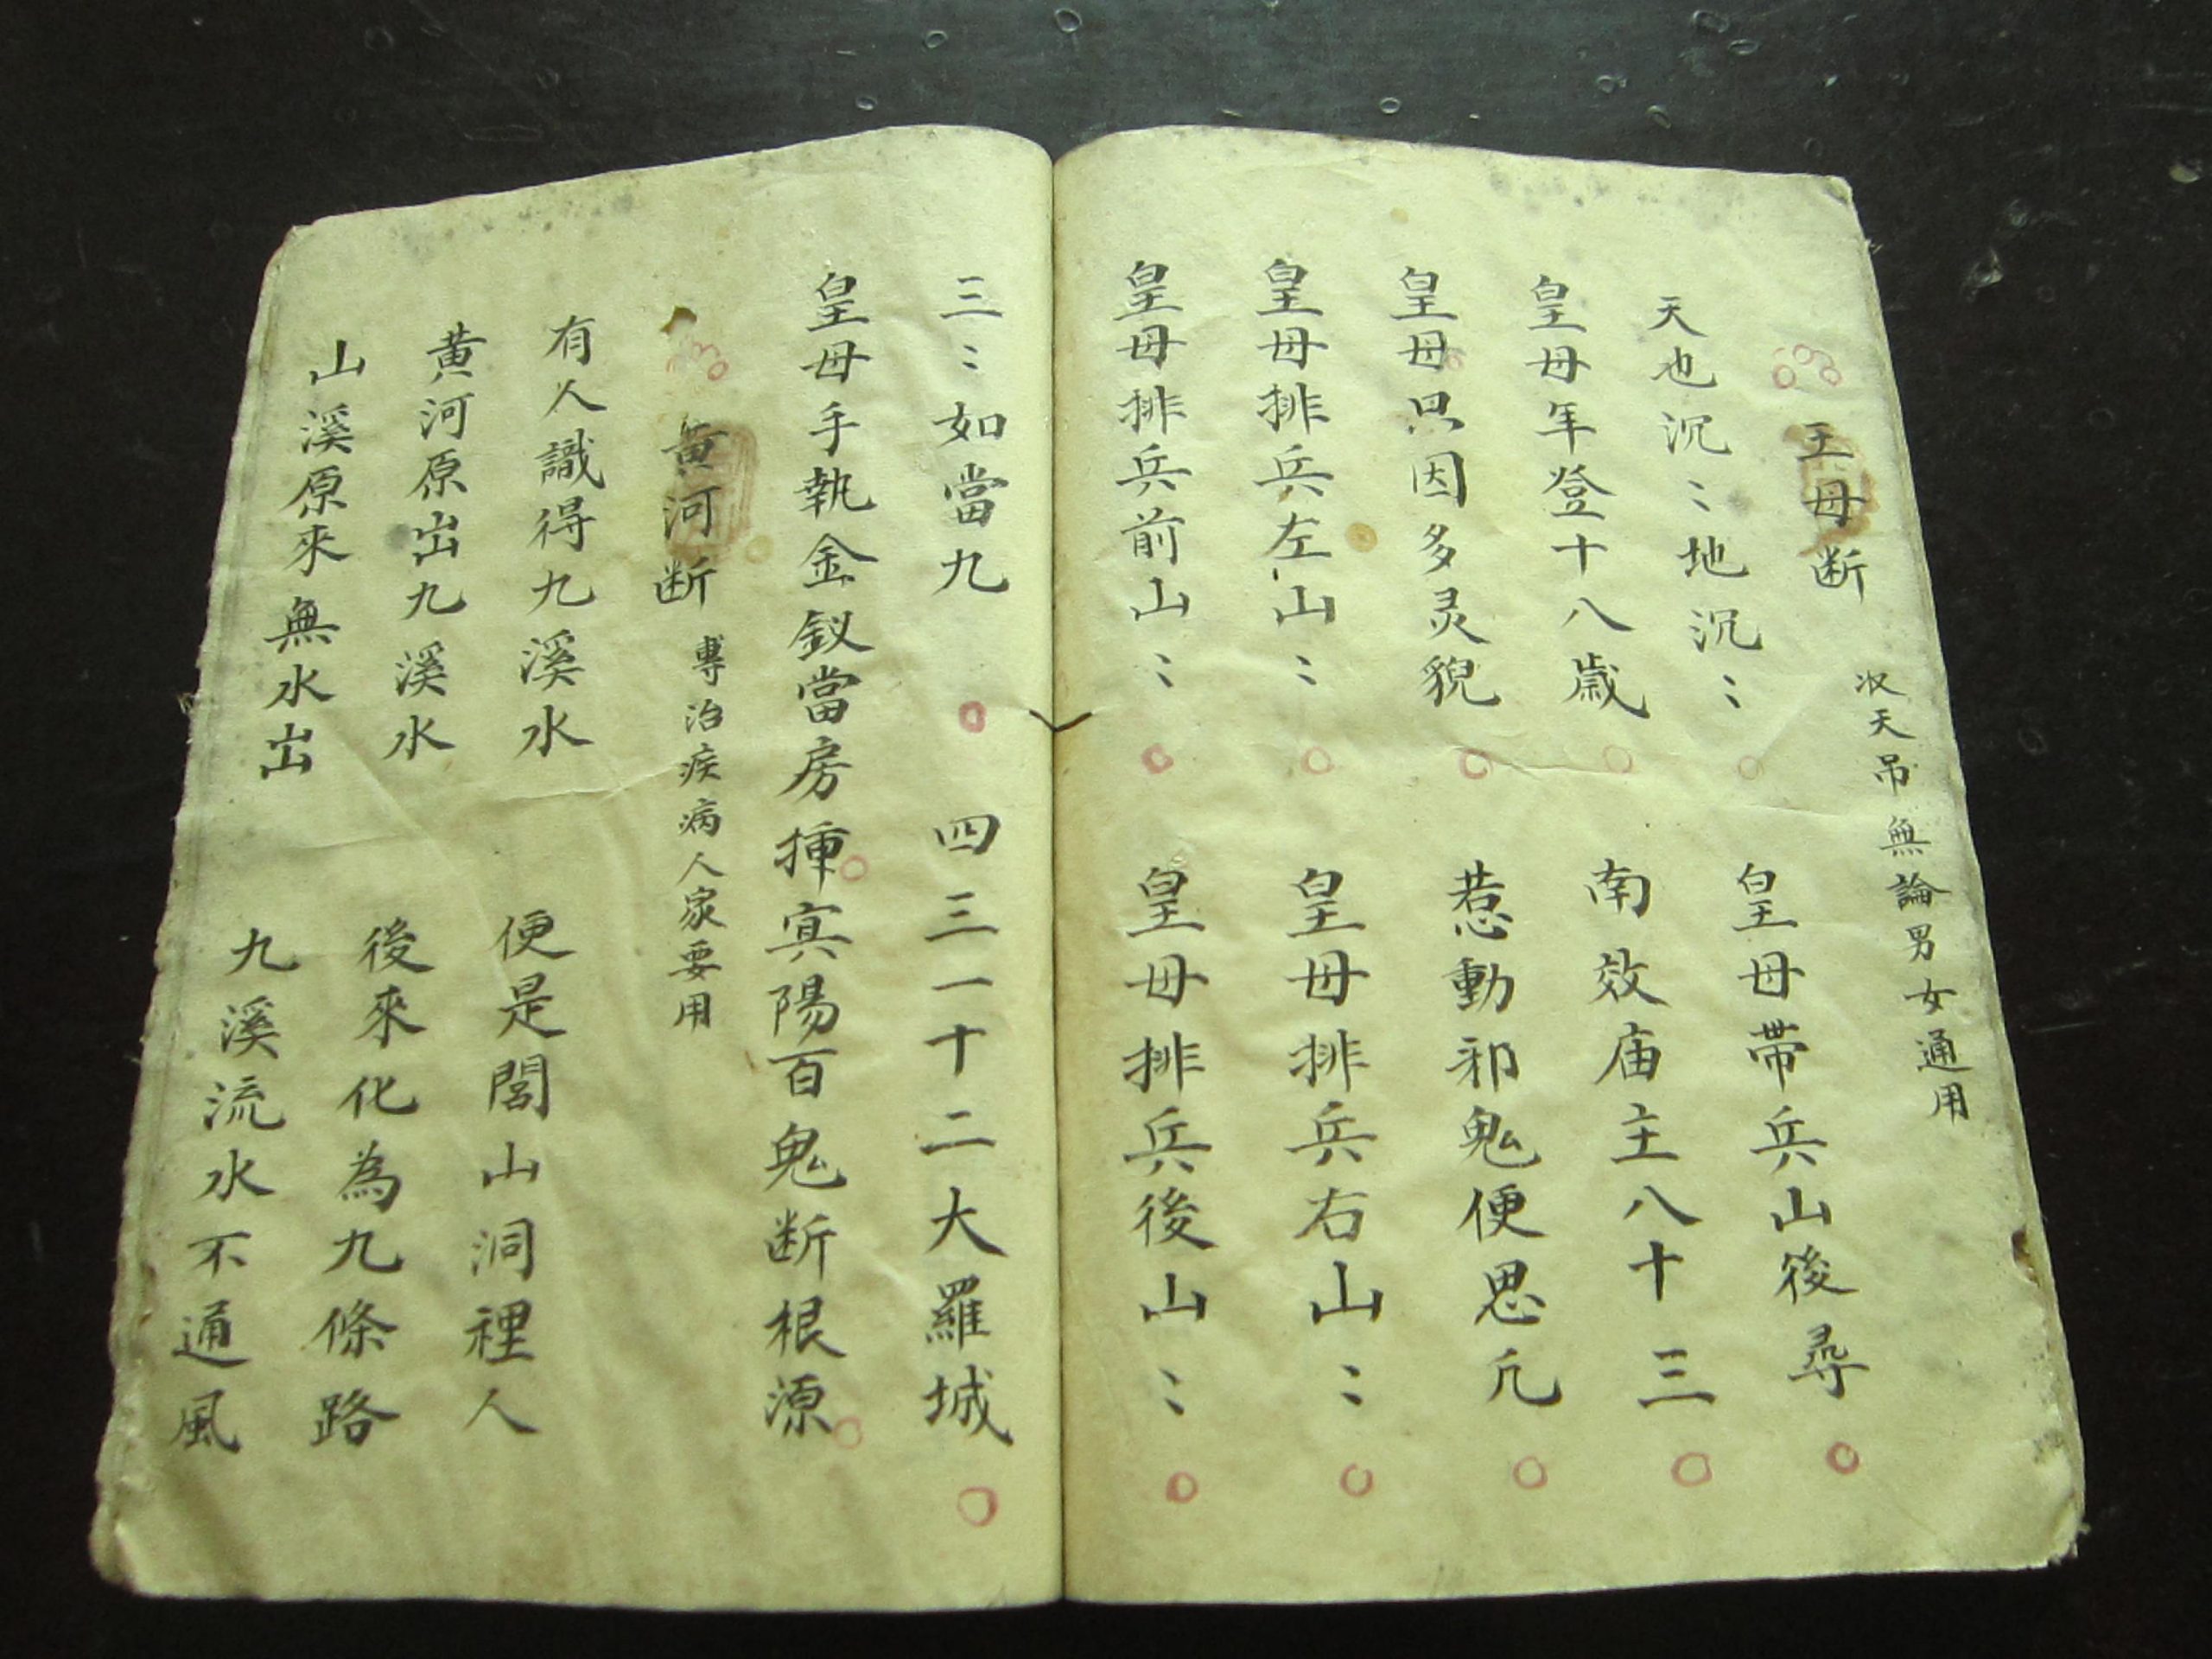 王母断 收天吊無論男女通用
天也沉〻地沉〻 皇母帶兵山後尋
皇母年登十八歲 南效庙主八十三
皇母只因多灵貌 惹動邪鬼便思凢
皇母排兵左山〻 皇母排兵右山〻
皇母排兵前山〻 皇母排兵後山〻
三〻如當九 四三一十二大羅城
皇母手執金釵當房揷寘陽百鬼断根源
黄河断 專治疾病人家要用
有人識得九溪水 便是閭山洞裡人
黄河原出九溪水 後來化為九條路
山溪原來無水出 九溪流水不通風